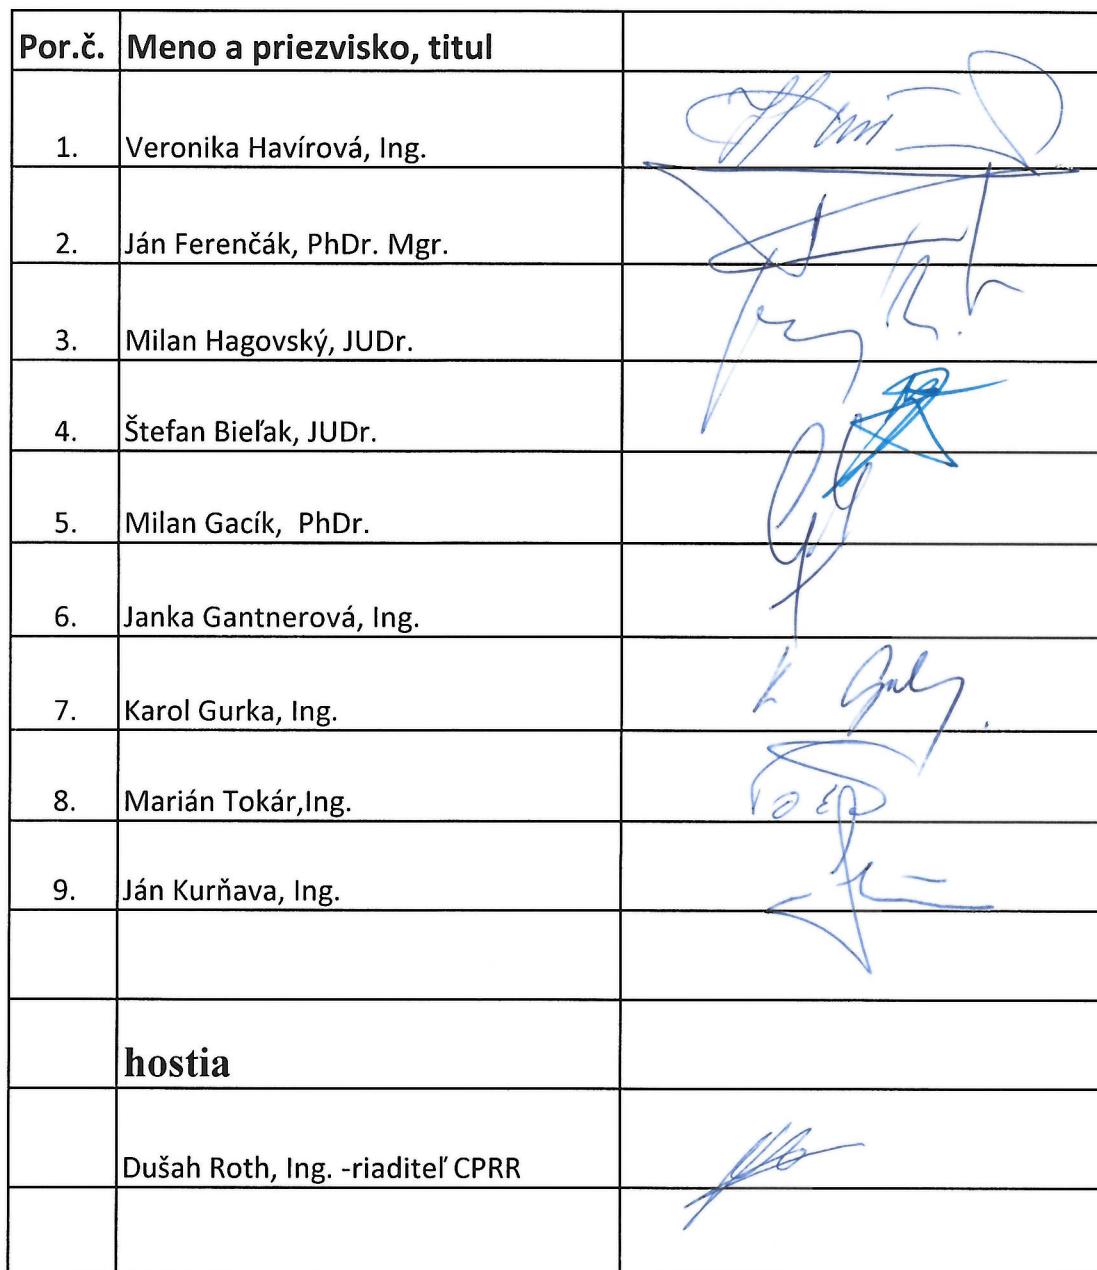 Por.č. Meno a priezvisko, titul
1. Veronika Havírová, Ing.
2. Ján Ferenčák, PhDr. Mgr.
3. Milan Hagovský, JUDr.
4. Štefan Bieľak, JUDr.
5. Milan Gacík, PhDr.
6. Janka Gantnerová, Ing.
7. Karol Gurka, Ing.
8. Marián Tokár,Ing.
9. Ján Kurňava, Ing.
hostia
Dušah Roth, Ing. -riaditeľ CPRR